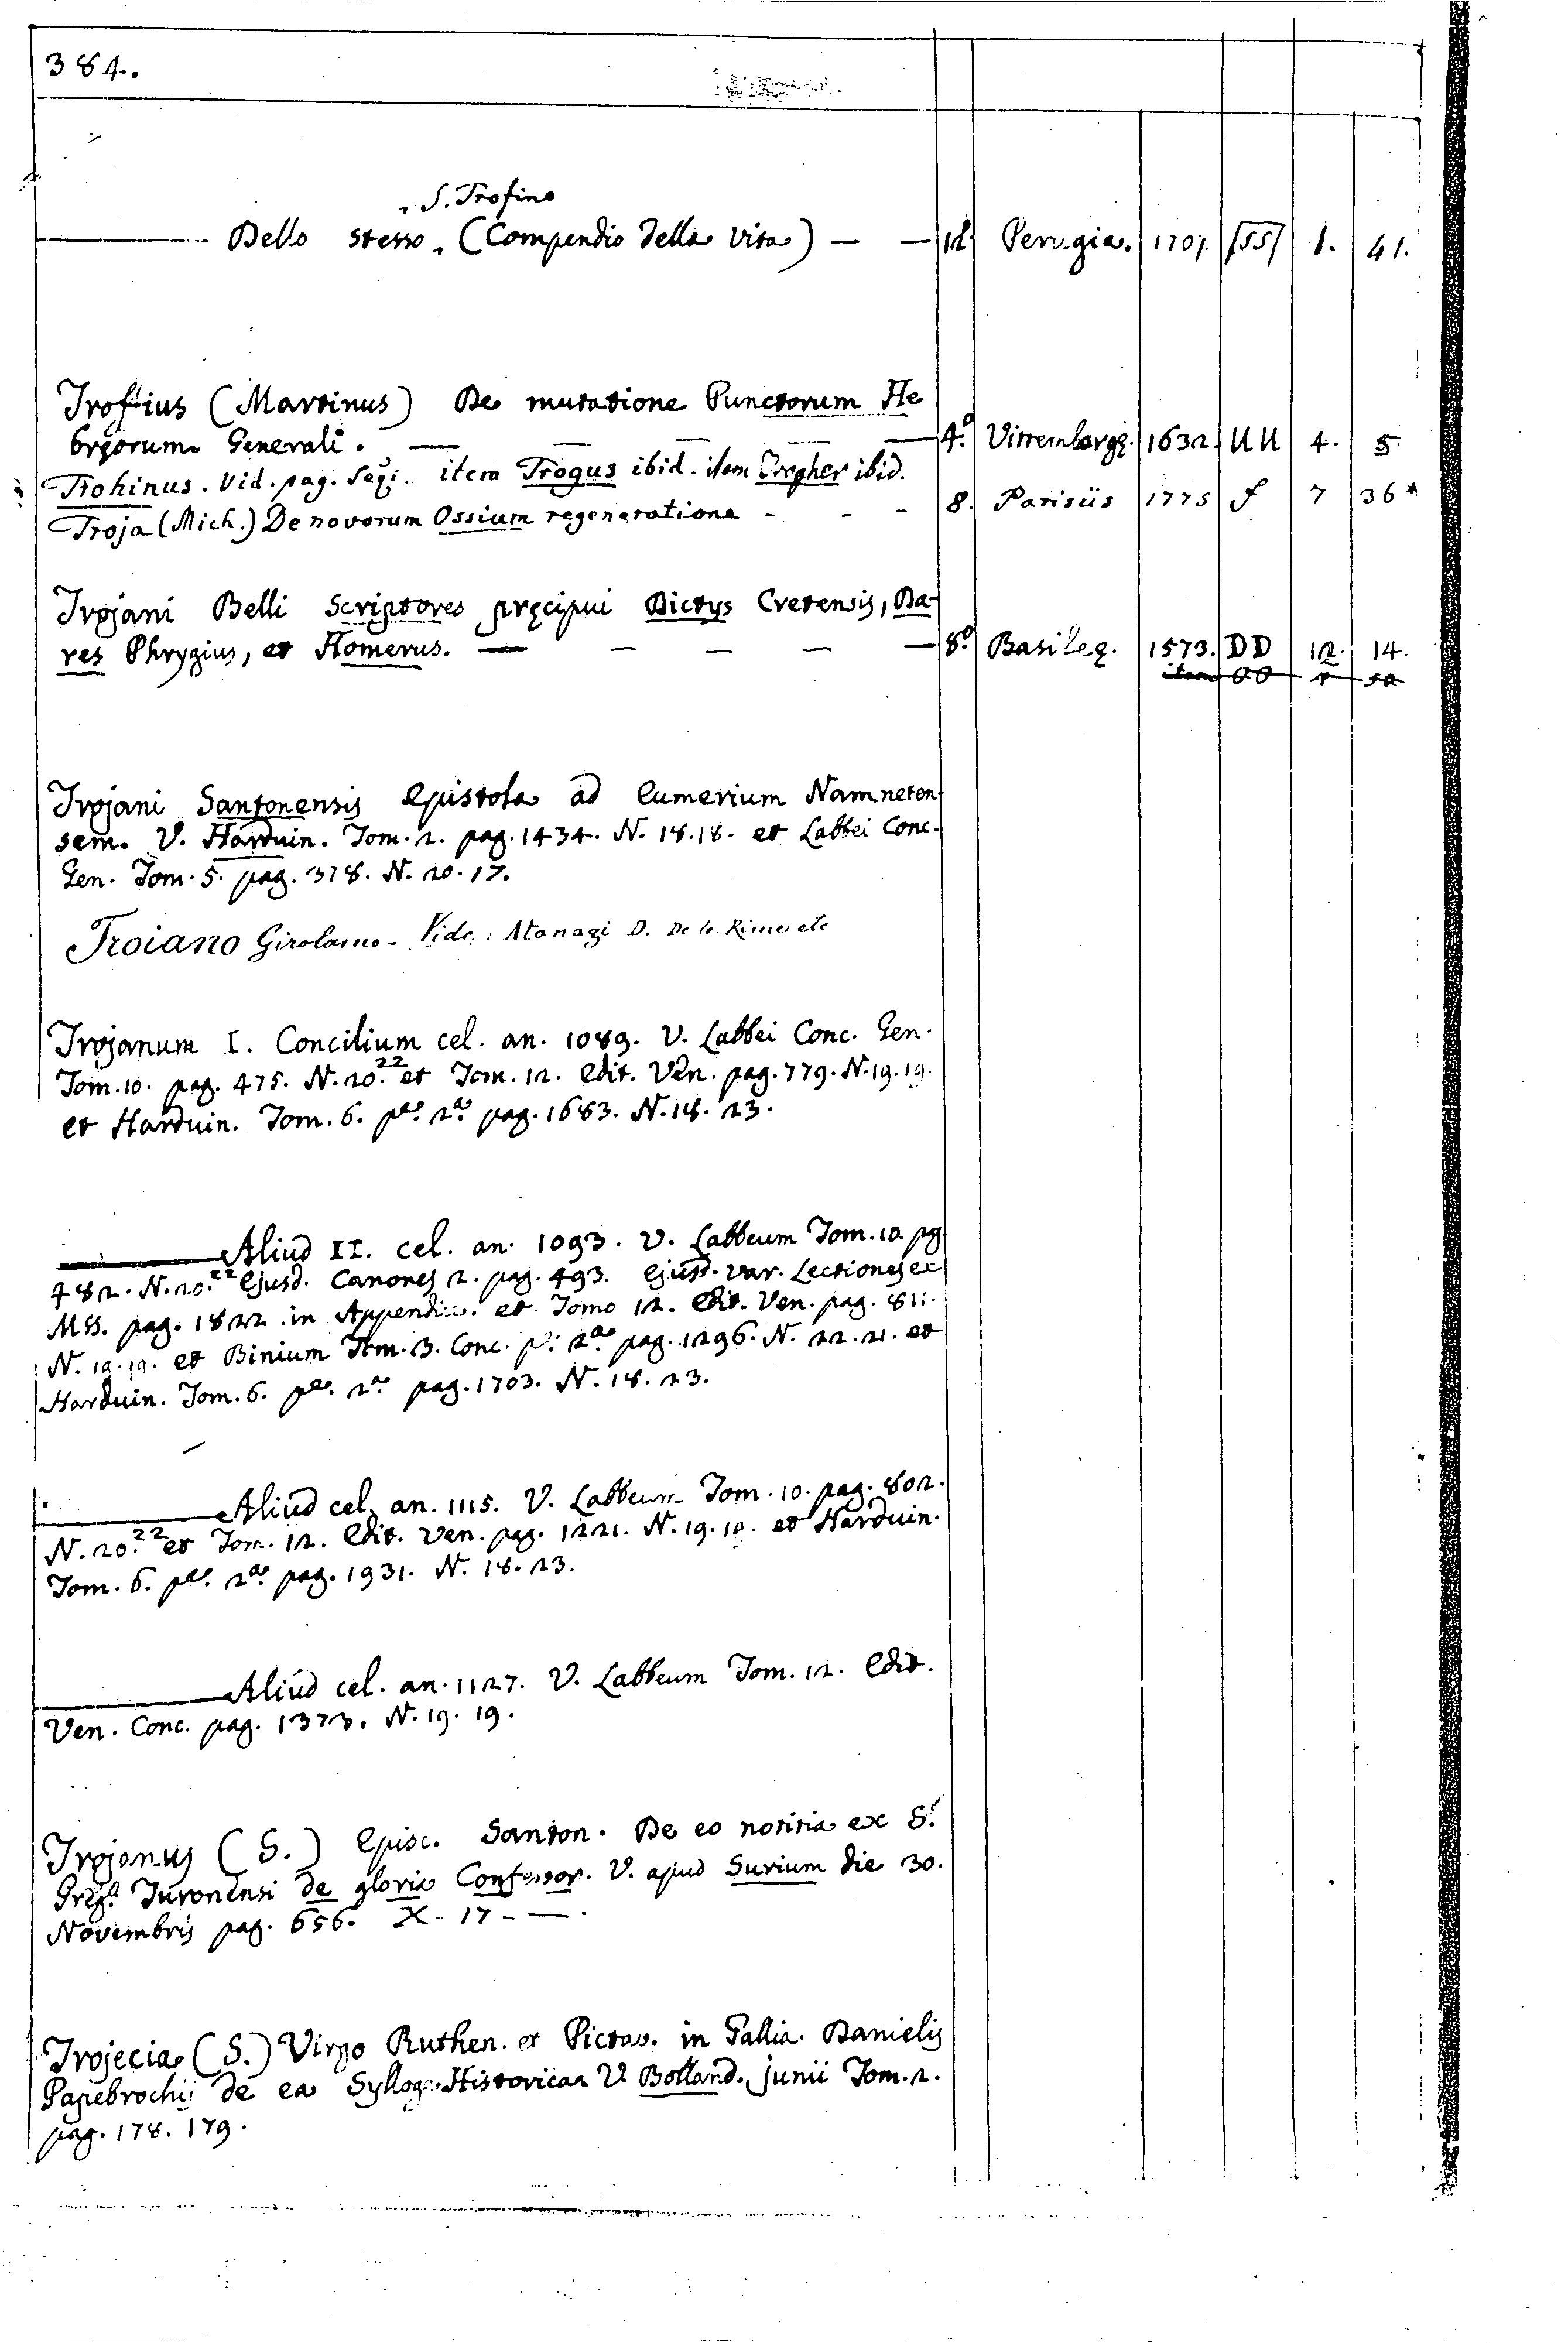 384.
S. Trofino
Dello stesso (Compendio della Vita) — — 12 Perugia. 1707. SS 1. 41.
Trostius (Martinus) De mutatione Punctorum He
bręorum Generali. — — — — — 4.º Vittembergę. 1632. UU 4. 5.
Trohinus. Vid. pag. seq. item Trogus ibid. item Tropher ibid.
Troja (Mich.) De novorum Ossium regeneratione - - - 8. Parisiis 1775 f 7 36*
Trojani Belli Scriptores pręcipui Dictys Cretensis, Da-
res Phrygius, et Homerus. — — — — — 8.º Basileę. 1573. DD 12. 14.
item OO
Trojani Santonensis Epistola ad Eumerium Namneten
sem. V. Harduin. Tom. 2. pag. 1434. N. 18.18. et Labbei Conc.
Gen. Tom. 5. pag. 378. N. 20. 17.
Troiano Girolamo - Vide: Atanagi D. De le Rime etc
Trojanum I. Concilium cel. an. 1089. V. Labbei Conc. Gen.
Tom. 10. pag. 475. N. 20. 22 et Tom. 12. Edit. Ven. pag. 779. N. 19. 19.
et Harduin. Tom. 6. pe. 2a. pag. 1683. N. 18. 23.
— Aliud II. cel. an. 1093. V. Labbeum Tom. 10. pg
482. N. 20. 22 Ejusd. Canones 2. pag. 493. Ejusd. var. Lectiones ex
MSS. pag. 1822 in Appendice. et Tomo 12. Edit. Ven. pag. 811.
N. 19. 19. et Binium Tom. 3. Conc. p. 2a. pag. 1296. N. 22. 21. et
Harduin. Tom. 6. pe. 2a. pag. 1703. N. 18. 23.
— Aliud cel. an. 1115. V. Labbeum Tom. 10. pag. 802.
N. 20. 22 et Tom. 12. Edit. Ven. pag. 1221. N. 19. 19. et Harduin.
Tom. 6. pe. 2a. pag. 1931. N. 18. 23.
— Aliud cel. an. 1127. V. Labbeum Tom. 12. Edit.
Ven. Conc. pag. 1373. N. 19. 19.
Trojanus (S.) Episc. Santon. De eo notitia ex S.
Greg. Turonensi de gloria Confessor. V. apud Surium die 30.
Novembris pag. 656. X. 17 - —.
Trojecia (S.) Virgo Ruthen. et Pictav. in Gallia. Danielis
Papebrochii de ea Sylloge Historica V. Bolland. Junii Tom. 2.
pag. 178. 179.